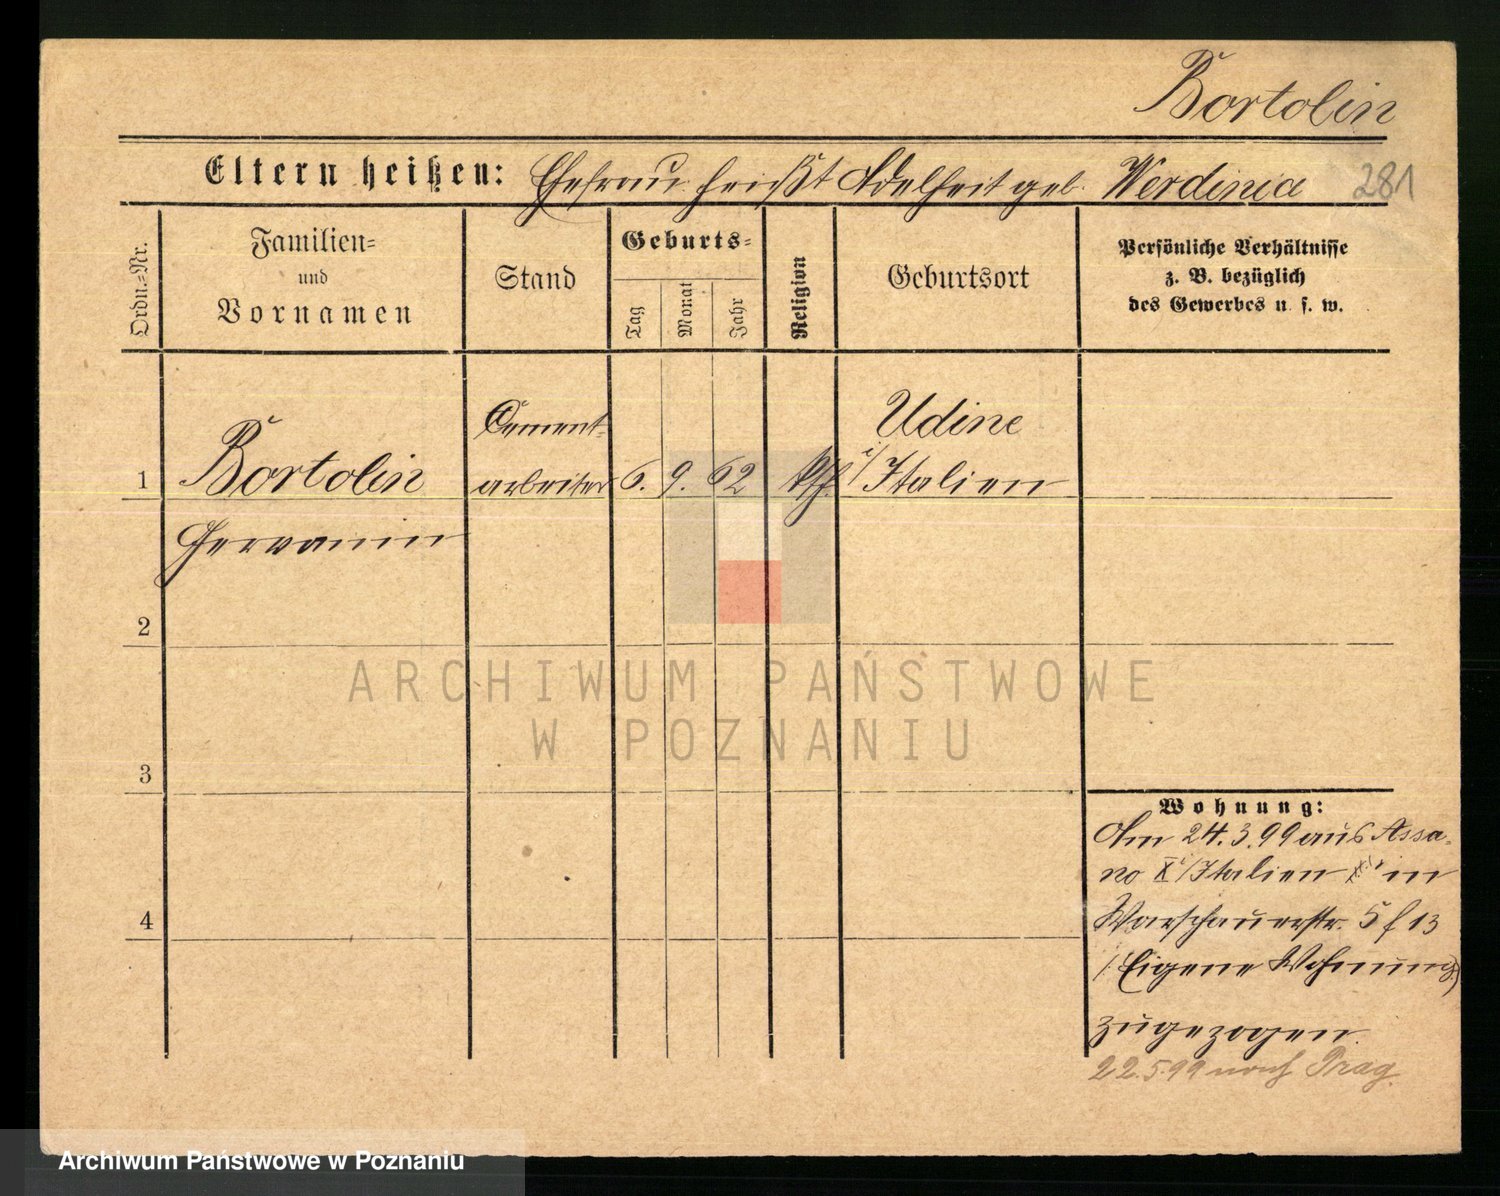 Bartolin
Eltern heißen: Ehefrau heißt Adelheit geb. Werdinia 281
Ordn.-Nr.
Familien-
und
Vornamen
Stand
Geburts-
Tag
Monat
Jahr
Religion
Geburtsort
Persönliche Verhältnisse
z. B. bezüglich
des Gewerbes u. s. w.
1
Bartolin
Cement-
arbeiter
6. 9. 62
kth
Udine
i/Italien
2
3
4
Wohnung:
Am 24.3.99 aus Assa-
no X i/Italien in
Warschauerstr. 5 f 13
(Eigene Wohnung)
zugezogen.
22.5.99 nach Prag.
ARCHIWUM PAŃSTWOWE
W POZNANIU
Archiwum Państwowe w Poznaniu